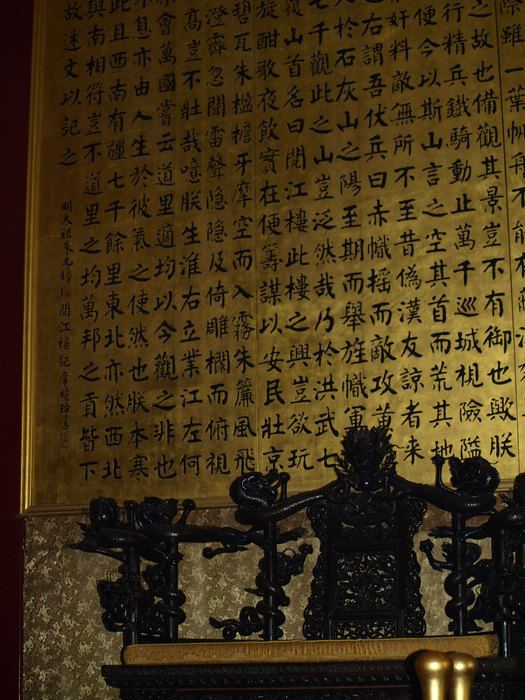 際雖一葉帆舟不能有
之故也備觀其景豈不有御也歟朕
行精兵鐵騎動止萬千巡城視險隘
便今以斯山言之空其首而荒其地
奸料敵無所不至昔偽漢友諒者來
之右謂吾伏兵曰赤幟搖而敵攻黃
人於石灰山之陽至期而舉旌幟軍
七千觀此之山豈泛然哉乃於洪武七
山首名曰閱江樓此樓之興豈欲玩
旋酣歌夜飲實在便籌謀以安民壯京
碧瓦朱楹檐牙摩空而入霧朱簾風飛
澄霽忽聞雷聲隱隱及倚雕欄而俯視
高豈不壯哉噫朕生淮右立業江左何
會萬國嘗云道里適均以今觀之非也
息亦由人生於彼氣之使然也朕本寒
此且西南有疆七千餘里東北亦然西北
與南相符豈不道里之均萬邦之貢皆下
故述文以記之
明太祖朱元璋撰閱江樓記